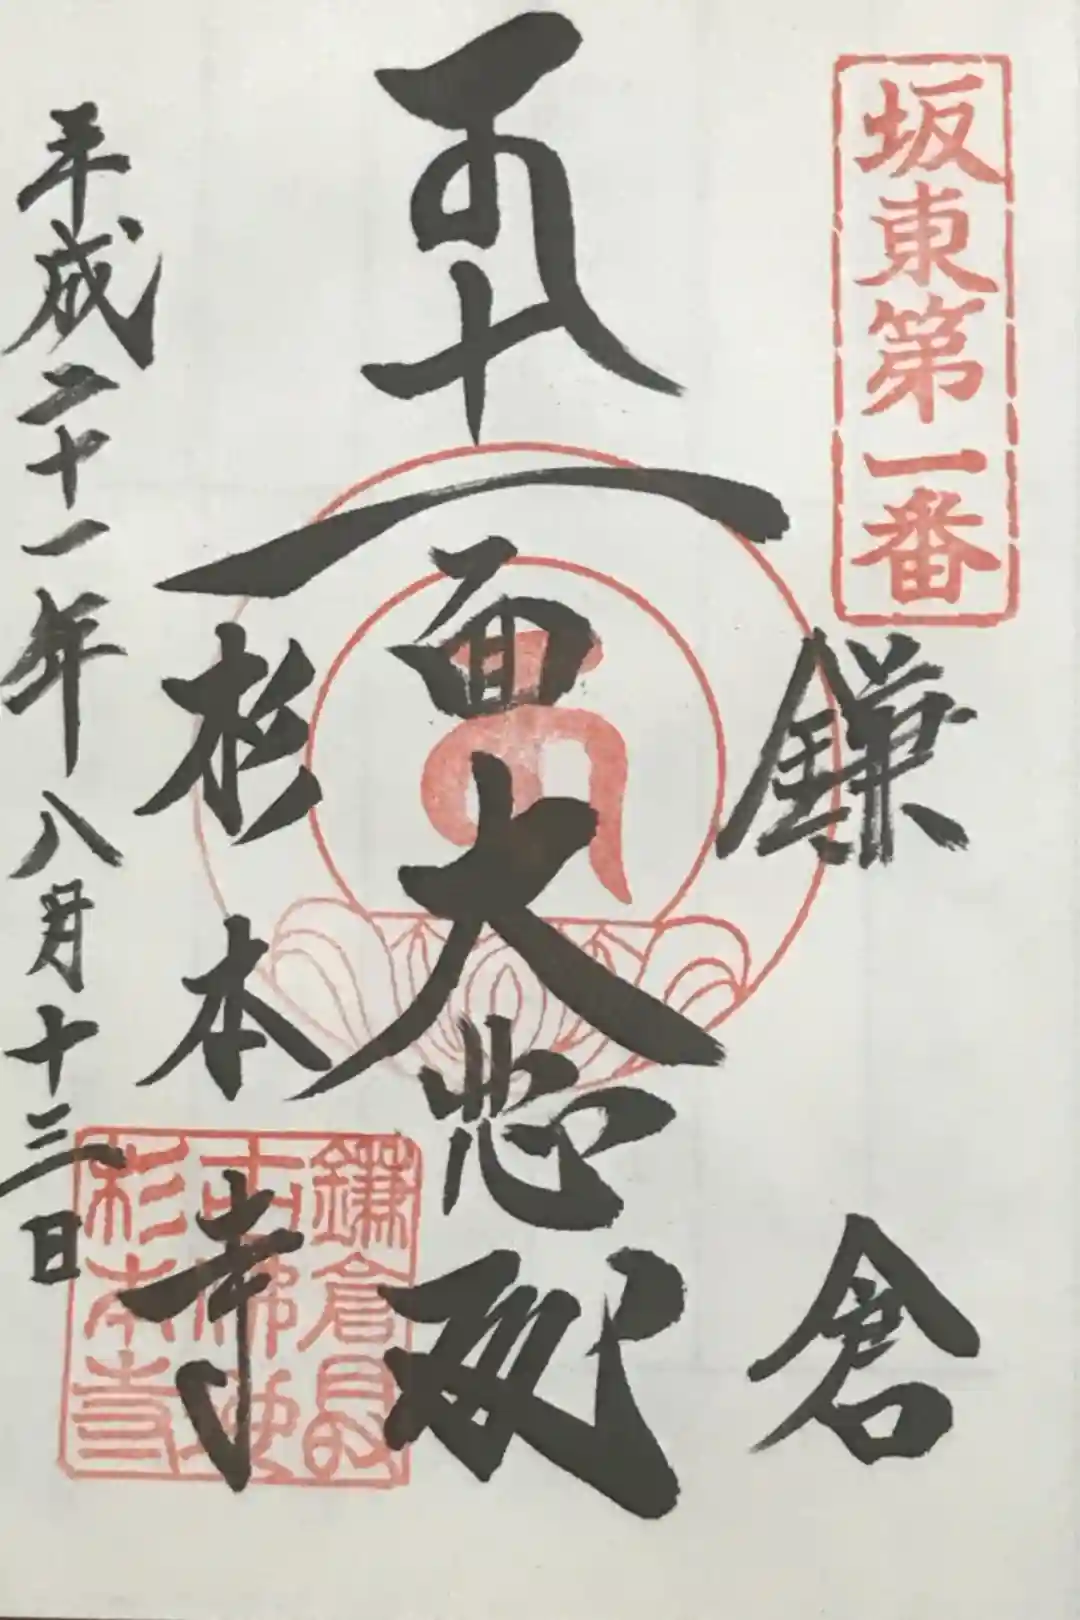 坂東第一番
鎌倉
十一面大悲殿
杉本寺
鎌倉最
古佛地
杉本寺
平成二十一年八月十三日